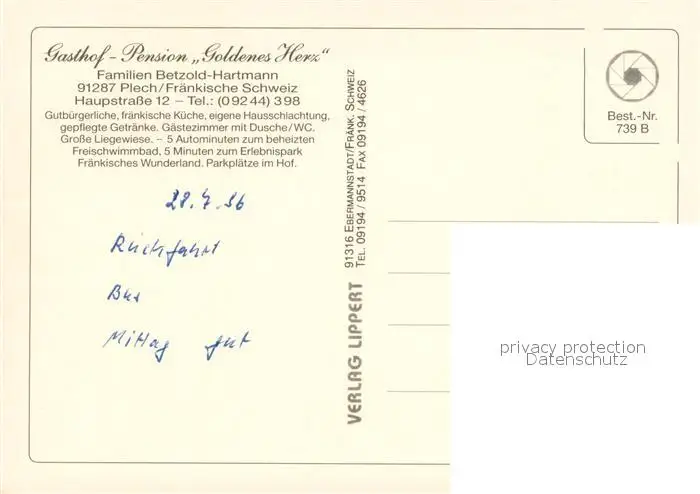 Gasthof - Pension „Goldenes Herz“
Familien Betzold-Hartmann
91287 Plech/Fränkische Schweiz
Haupstraße 12 – Tel.: (09244) 398
Gutbürgerliche, fränkische Küche, eigene Hausschlachtung,
gepflegte Getränke. Gästezimmer mit Dusche/WC.
Große Liegewiese. – 5 Autominuten zum beheizten
Freischwimmbad, 5 Minuten zum Erlebnispark
Fränkisches Wunderland. Parkplätze im Hof.
28.7.96
Rückfahrt
Bus
Mittag gut
VERLAG LIPPERT 91316 EBERMANNSTADT/FRÄNK. SCHWEIZ
TEL. 09194/9514 FAX 09194/4626
Best.-Nr.
739 B
privacy protection
Datenschutz